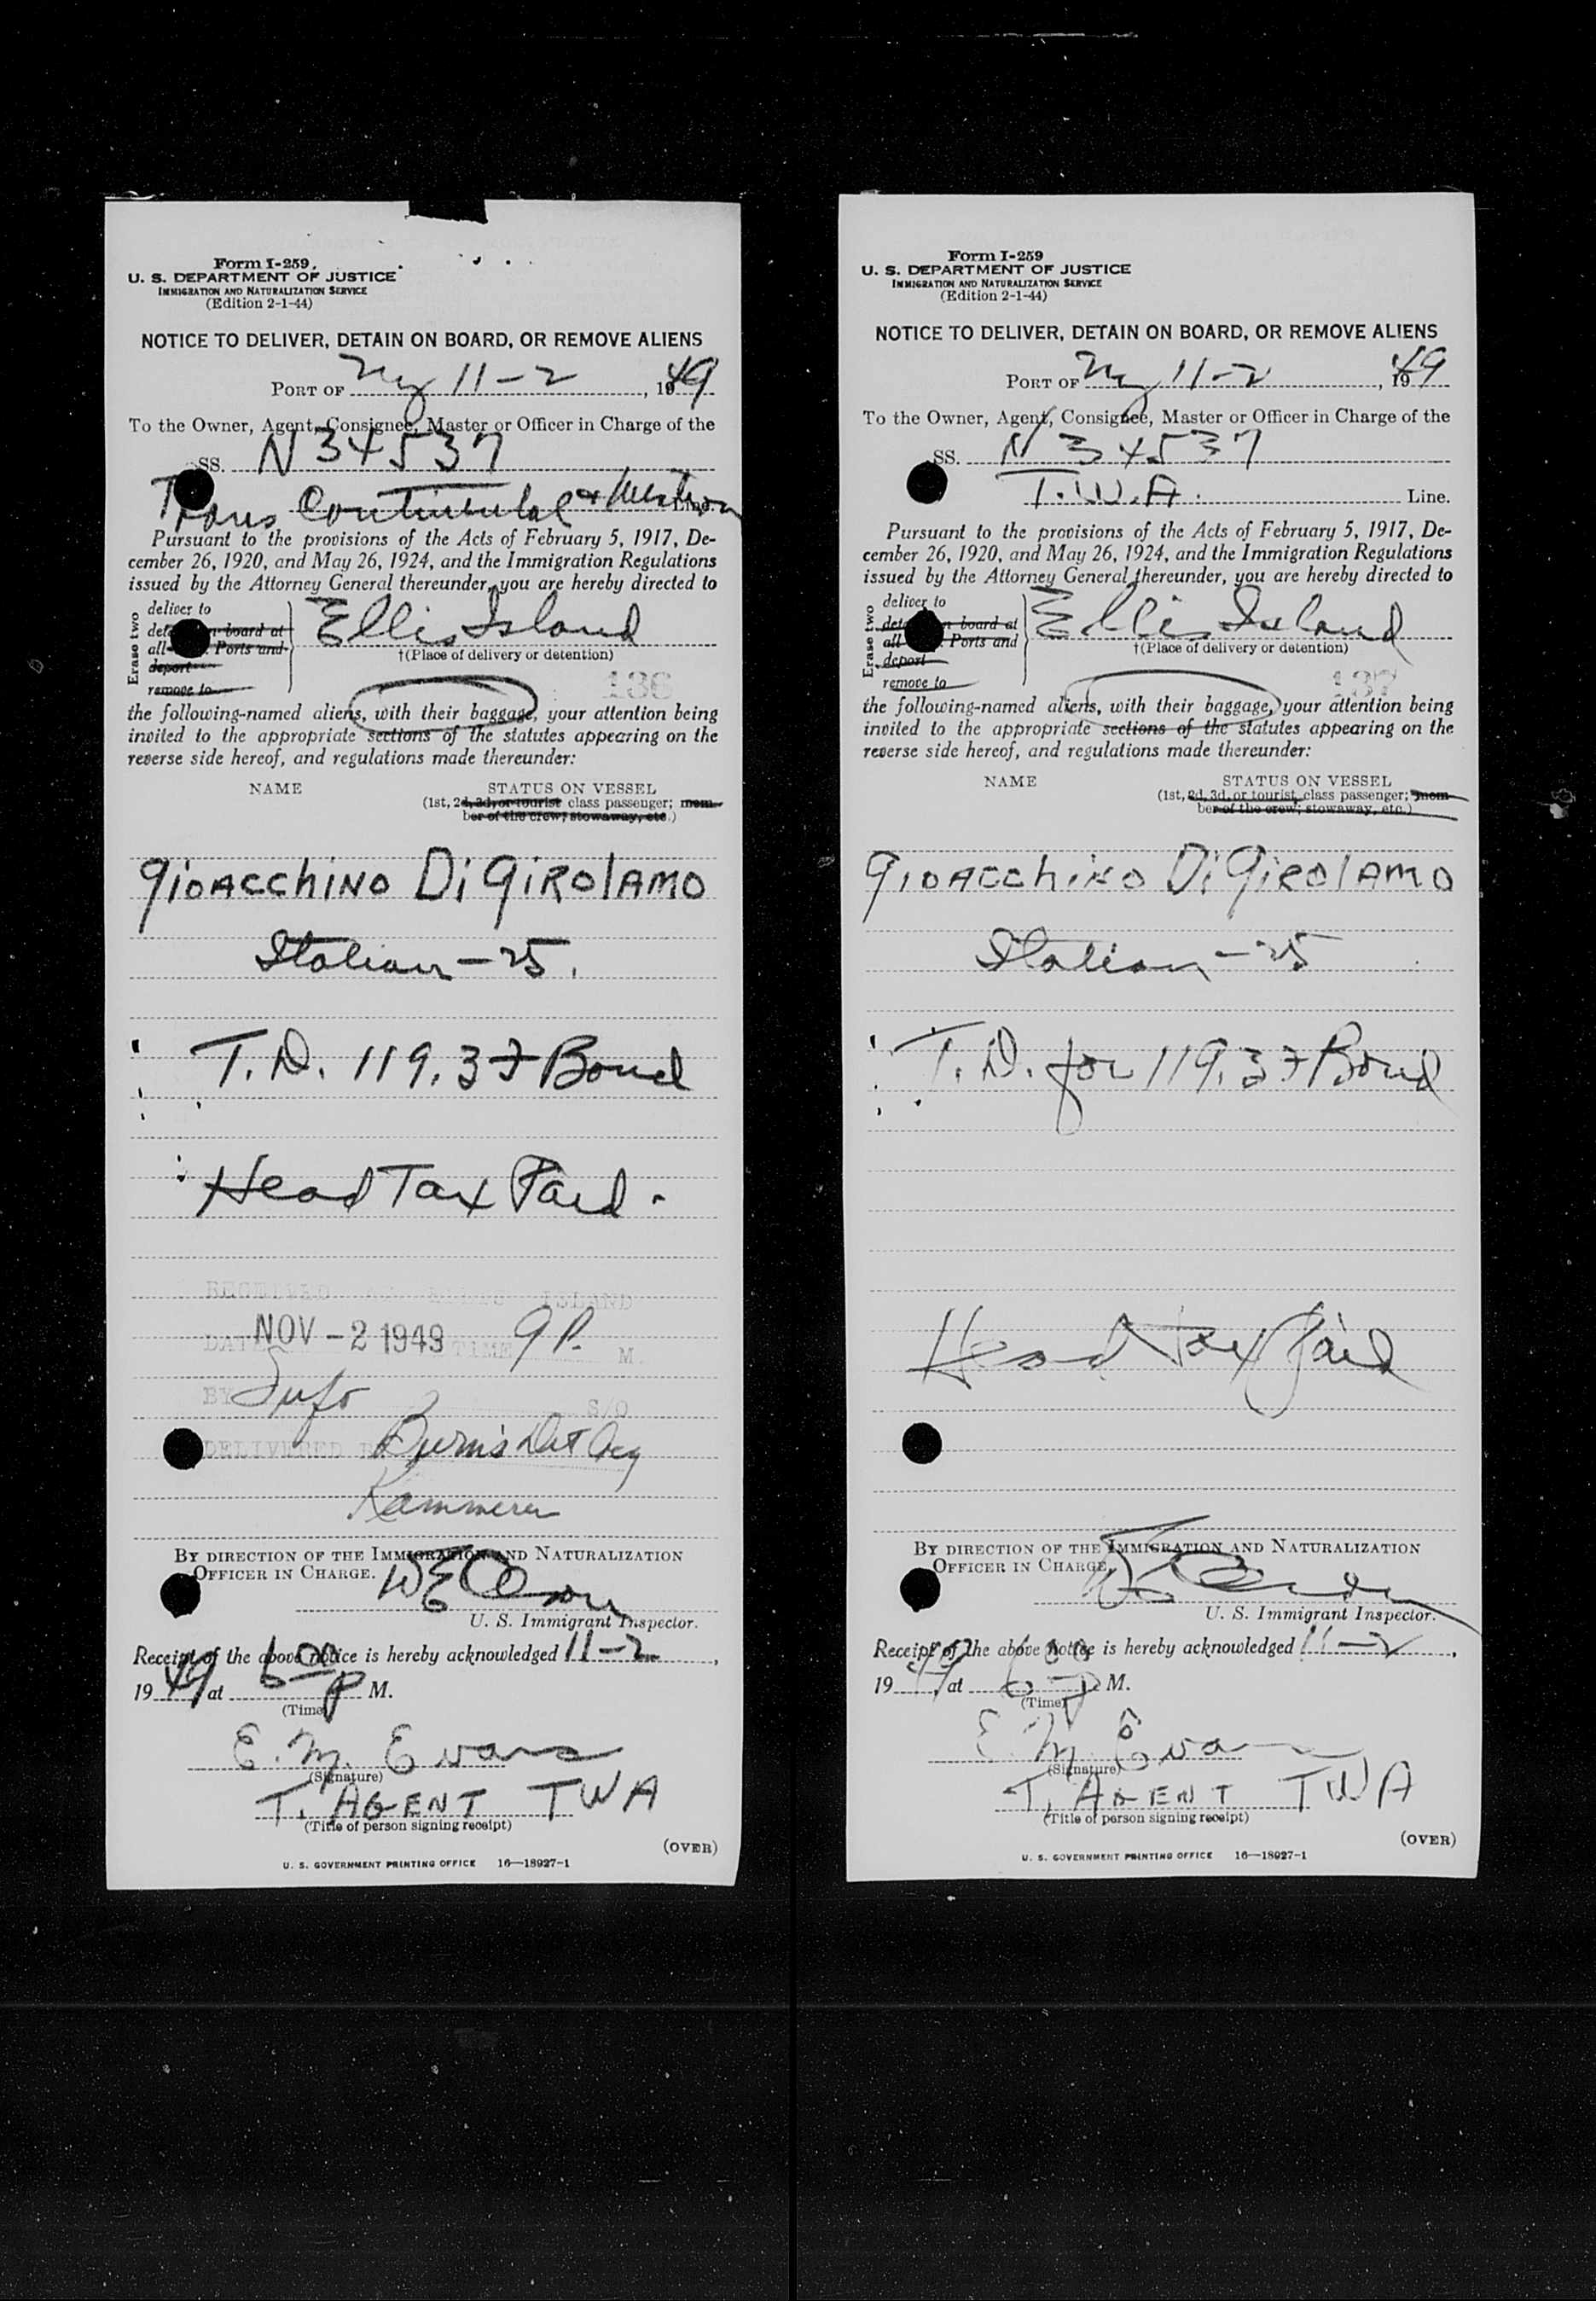 Form I-259
U. S. DEPARTMENT OF JUSTICE
IMMIGRATION AND NATURALIZATION SERVICE
(Edition 2-1-44)
NOTICE TO DELIVER, DETAIN ON BOARD, OR REMOVE ALIENS
PORT OF Ny 11-2, 1949
To the Owner, Agent, Consignee, Master or Officer in Charge of the
SS. N 34537
Trans Continental & Western Line.
Pursuant to the provisions of the Acts of February 5, 1917, De-
cember 26, 1920, and May 26, 1924, and the Immigration Regulations
issued by the Attorney General thereunder, you are hereby directed to
Erase two
deliver to
board at
all Ports and
deport
remove to
Ellis Island
†(Place of delivery or detention)
136
the following-named aliens, with their baggage, your attention being
invited to the appropriate sections of the statutes appearing on the
reverse side hereof, and regulations made thereunder:
NAME STATUS ON VESSEL
(1st, 2d, 3d, or tourist class passenger; mem-
ber of the crew; stowaway, etc.)
GIOACCHINO DI GIROLAMO
Italian - 25.
T.D. 119.37 Bond
Head Tax Paid.
RECEIVED ELLIS ISLAND
DATE NOV -2 1949 TIME 9 P. M.
BY S/O
DELIVERED Burns Det Acy
Kammerer
BY DIRECTION OF THE IMMIGRATION AND NATURALIZATION
OFFICER IN CHARGE.
U. S. Immigrant Inspector.
Receipt of the above notice is hereby acknowledged 11-2,
1949, at 600 P M.
(Time)
E. M. Evans
(Signature)
T. AGENT TWA
(Title of person signing receipt)
(OVER)
U. S. GOVERNMENT PRINTING OFFICE 16—18927-1
Form I-259
U. S. DEPARTMENT OF JUSTICE
IMMIGRATION AND NATURALIZATION SERVICE
(Edition 2-1-44)
NOTICE TO DELIVER, DETAIN ON BOARD, OR REMOVE ALIENS
PORT OF Ny 11-2, 1949
To the Owner, Agent, Consignee, Master or Officer in Charge of the
SS. N 34537
T.W.A. Line.
Pursuant to the provisions of the Acts of February 5, 1917, De-
cember 26, 1920, and May 26, 1924, and the Immigration Regulations
issued by the Attorney General thereunder, you are hereby directed to
Erase two
deliver to
board at
all Ports and
deport
remove to
Ellis Island
†(Place of delivery or detention)
137
the following-named aliens, with their baggage, your attention being
invited to the appropriate sections of the statutes appearing on the
reverse side hereof, and regulations made thereunder:
NAME STATUS ON VESSEL
(1st, 2d, 3d, or tourist, class passenger; mem-
ber of the crew; stowaway, etc.)
GIOACCHINO DI GIROLAMO
Italian - 25
T.D. for 119.37 Bond
Head Tax Paid
BY DIRECTION OF THE IMMIGRATION AND NATURALIZATION
OFFICER IN CHARGE.
U. S. Immigrant Inspector.
Receipt of the above notice is hereby acknowledged 11-2,
1949, at 600 P M.
(Time)
E. M. Evans
(Signature)
T. AGENT TWA
(Title of person signing receipt)
(OVER)
U. S. GOVERNMENT PRINTING OFFICE 16—18927-1